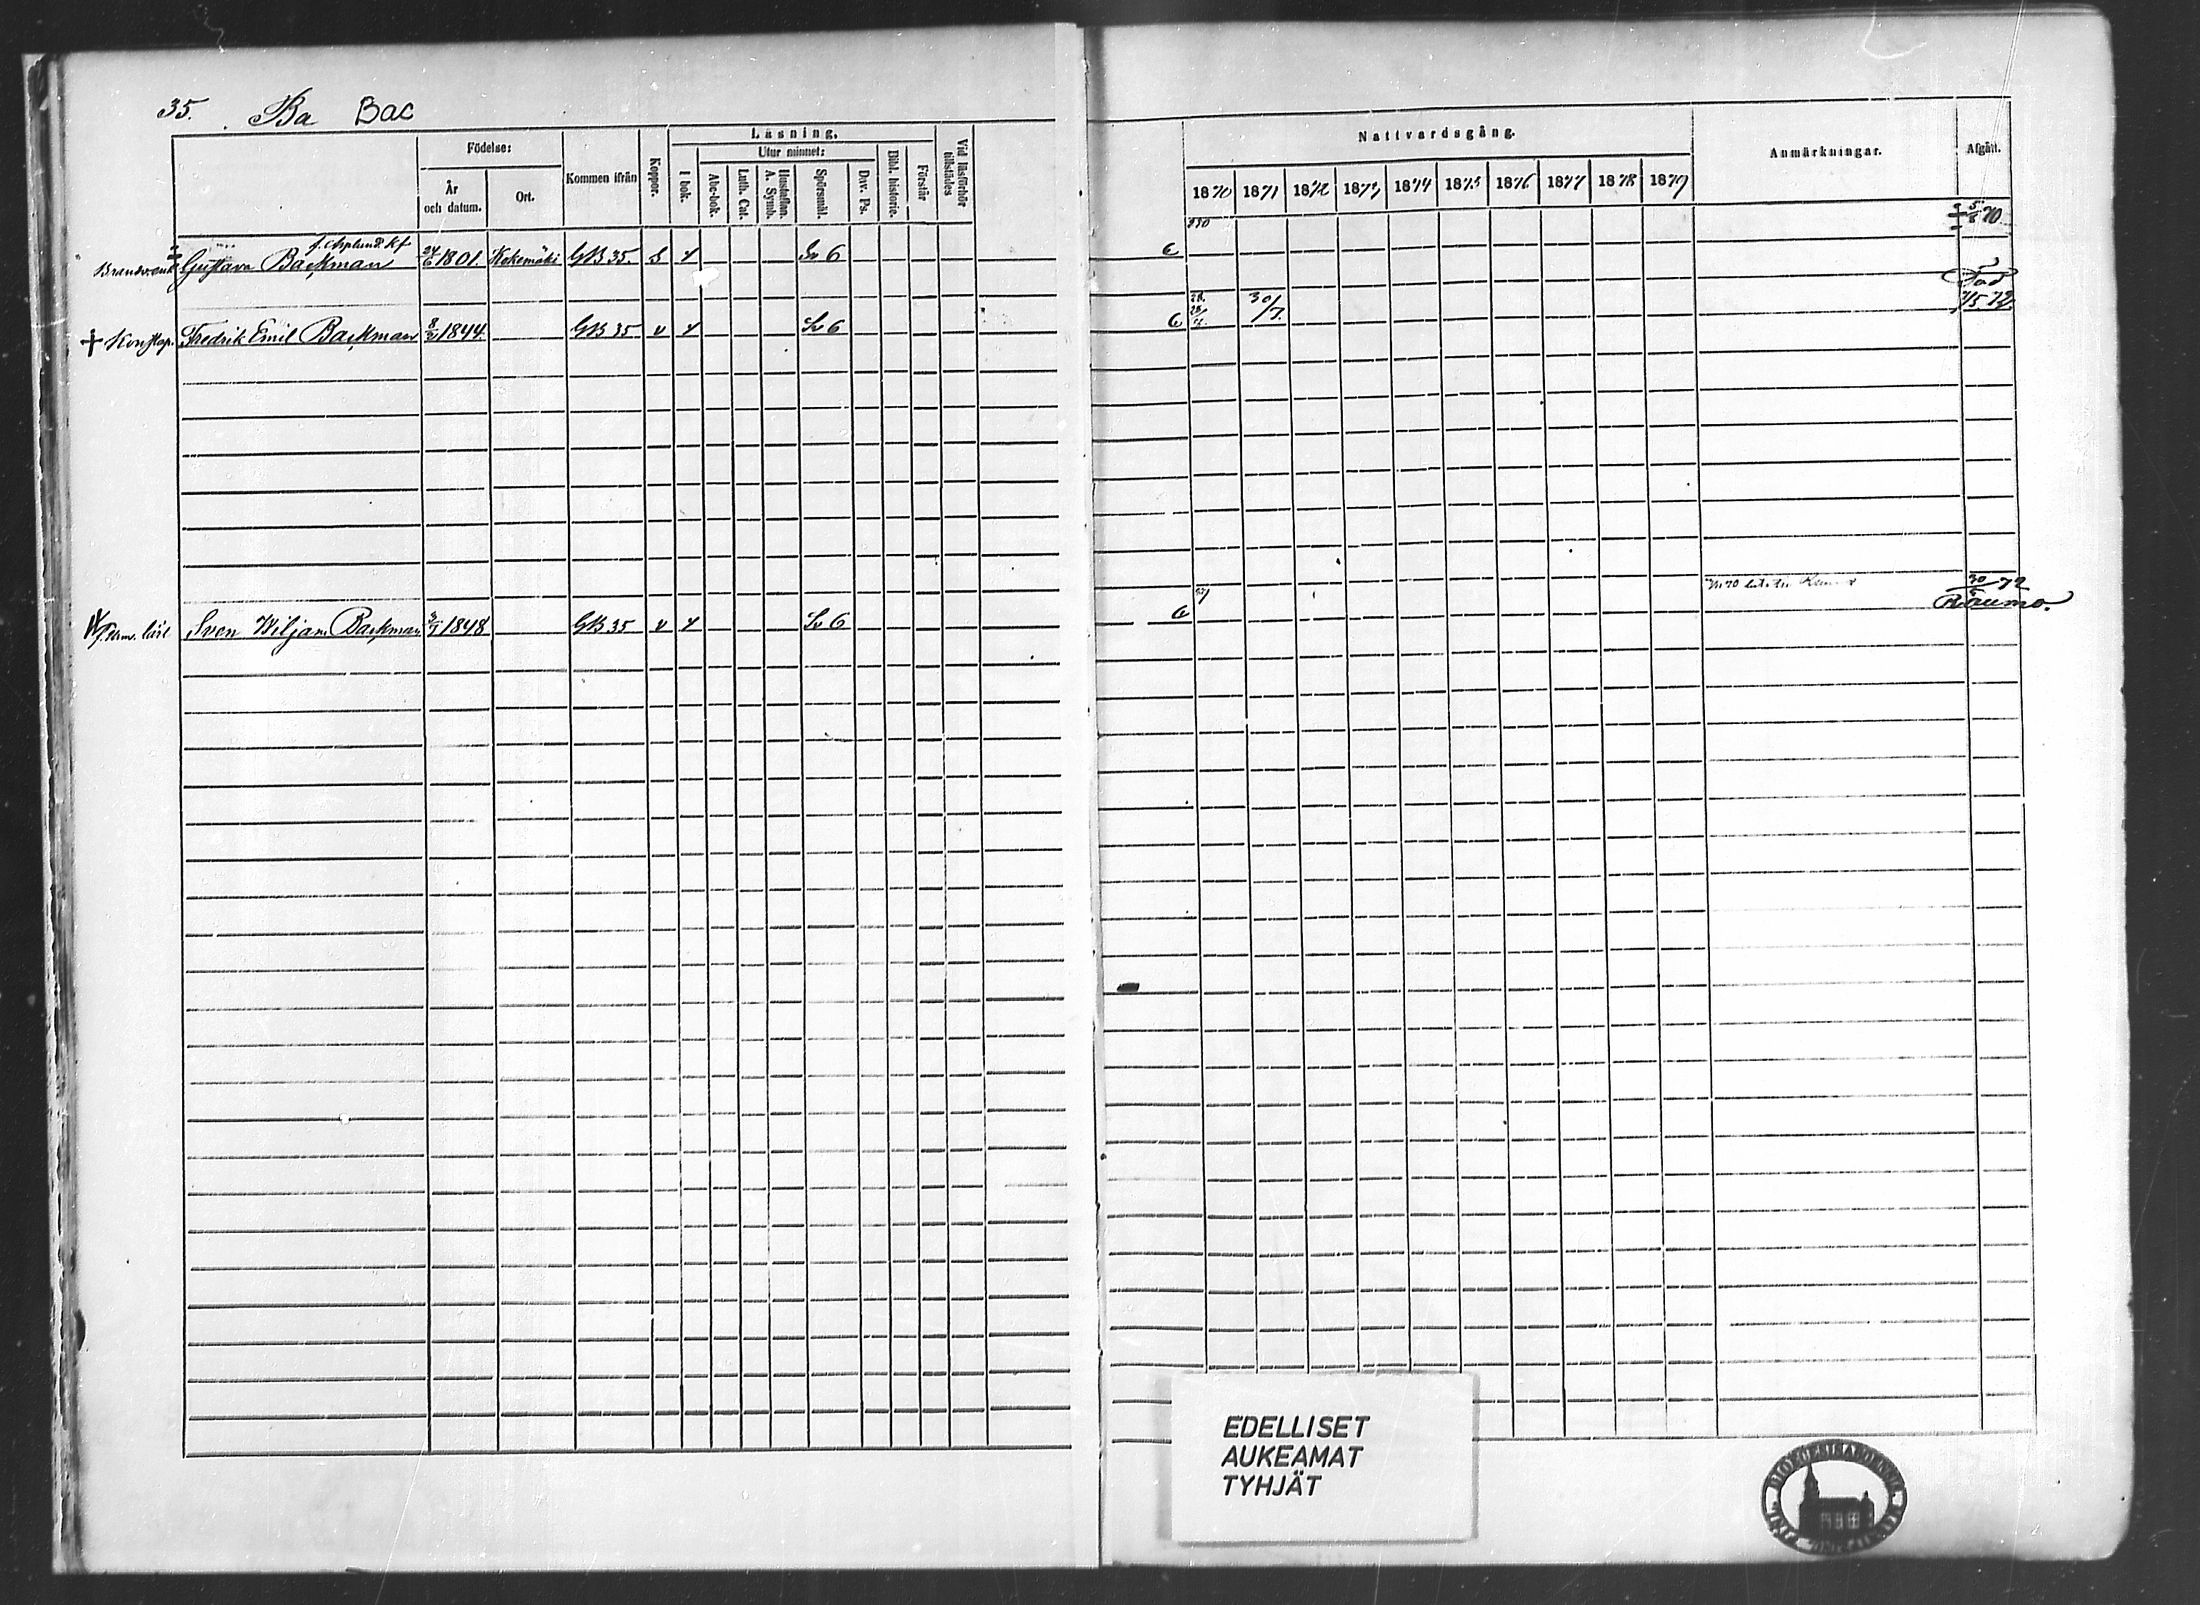 35. Ba Bac
Födelse: Kommen ifrån Koppor. Läsning. Vid läsförhör tillstädes
År och datum. Ort. I bok. Utur minnet: Bibl. historie. Förstår
Abc-bok. Luth. Cat. Hustaflan. A. Symb. Spörsmål. Dav. Ps.
Nattvardsgång. Anmärkningar. Afgått.
1870 1871 1872 1873 1874 1875 1876 1877 1878 1879
f. Asplund. Kf
Gustava Backman 24/6 1801. Kokemäki GB 35. S 4 Sv 6 6 5/6 70
Död
Konstap. Fredrik Emil Backman 8/2 1844. GB 35 v 4 Sv 6 6 30/7. 72
30/5 72
Sven Wiljam Backman 1848 GB 35 v 4 Sv 6 6 Raumo.
EDELLISET
AUKEAMAT
TYHJÄT